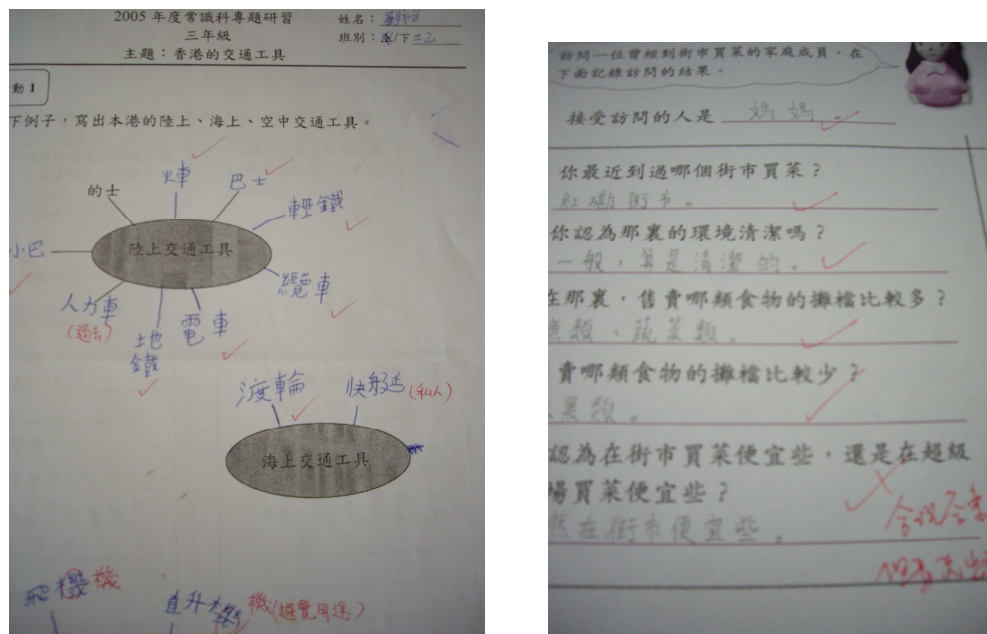 2005 年度常識科專題研習
三年級
主題：香港的交通工具
姓名：
班別： /下 三乙
動 1
下例子，寫出本港的陸上、海上、空中交通工具。
火車
巴士
的士
輕鐵
小巴
陸上交通工具
纜車
人力車
(過去)
地鐵
電車
渡輪
快船 (私人)
海上交通工具
飛機 機
直升 機(遊覽用途)
訪問一位曾經到街市買菜的家庭成員，在
下面記錄訪問的結果。
接受訪問的人是 媽媽。
你最近到過哪個街市買菜？
紅磡街市。
你認為那裏的環境清潔嗎？
一般，算是清潔的。
在那裏，售賣哪類食物的攤檔比較多？
魚類、蔬菜類。
賣哪類食物的攤檔比較少？
果類。
認為在街市買菜便宜些，還是在超級
場買菜便宜些？
然在街市便宜些。